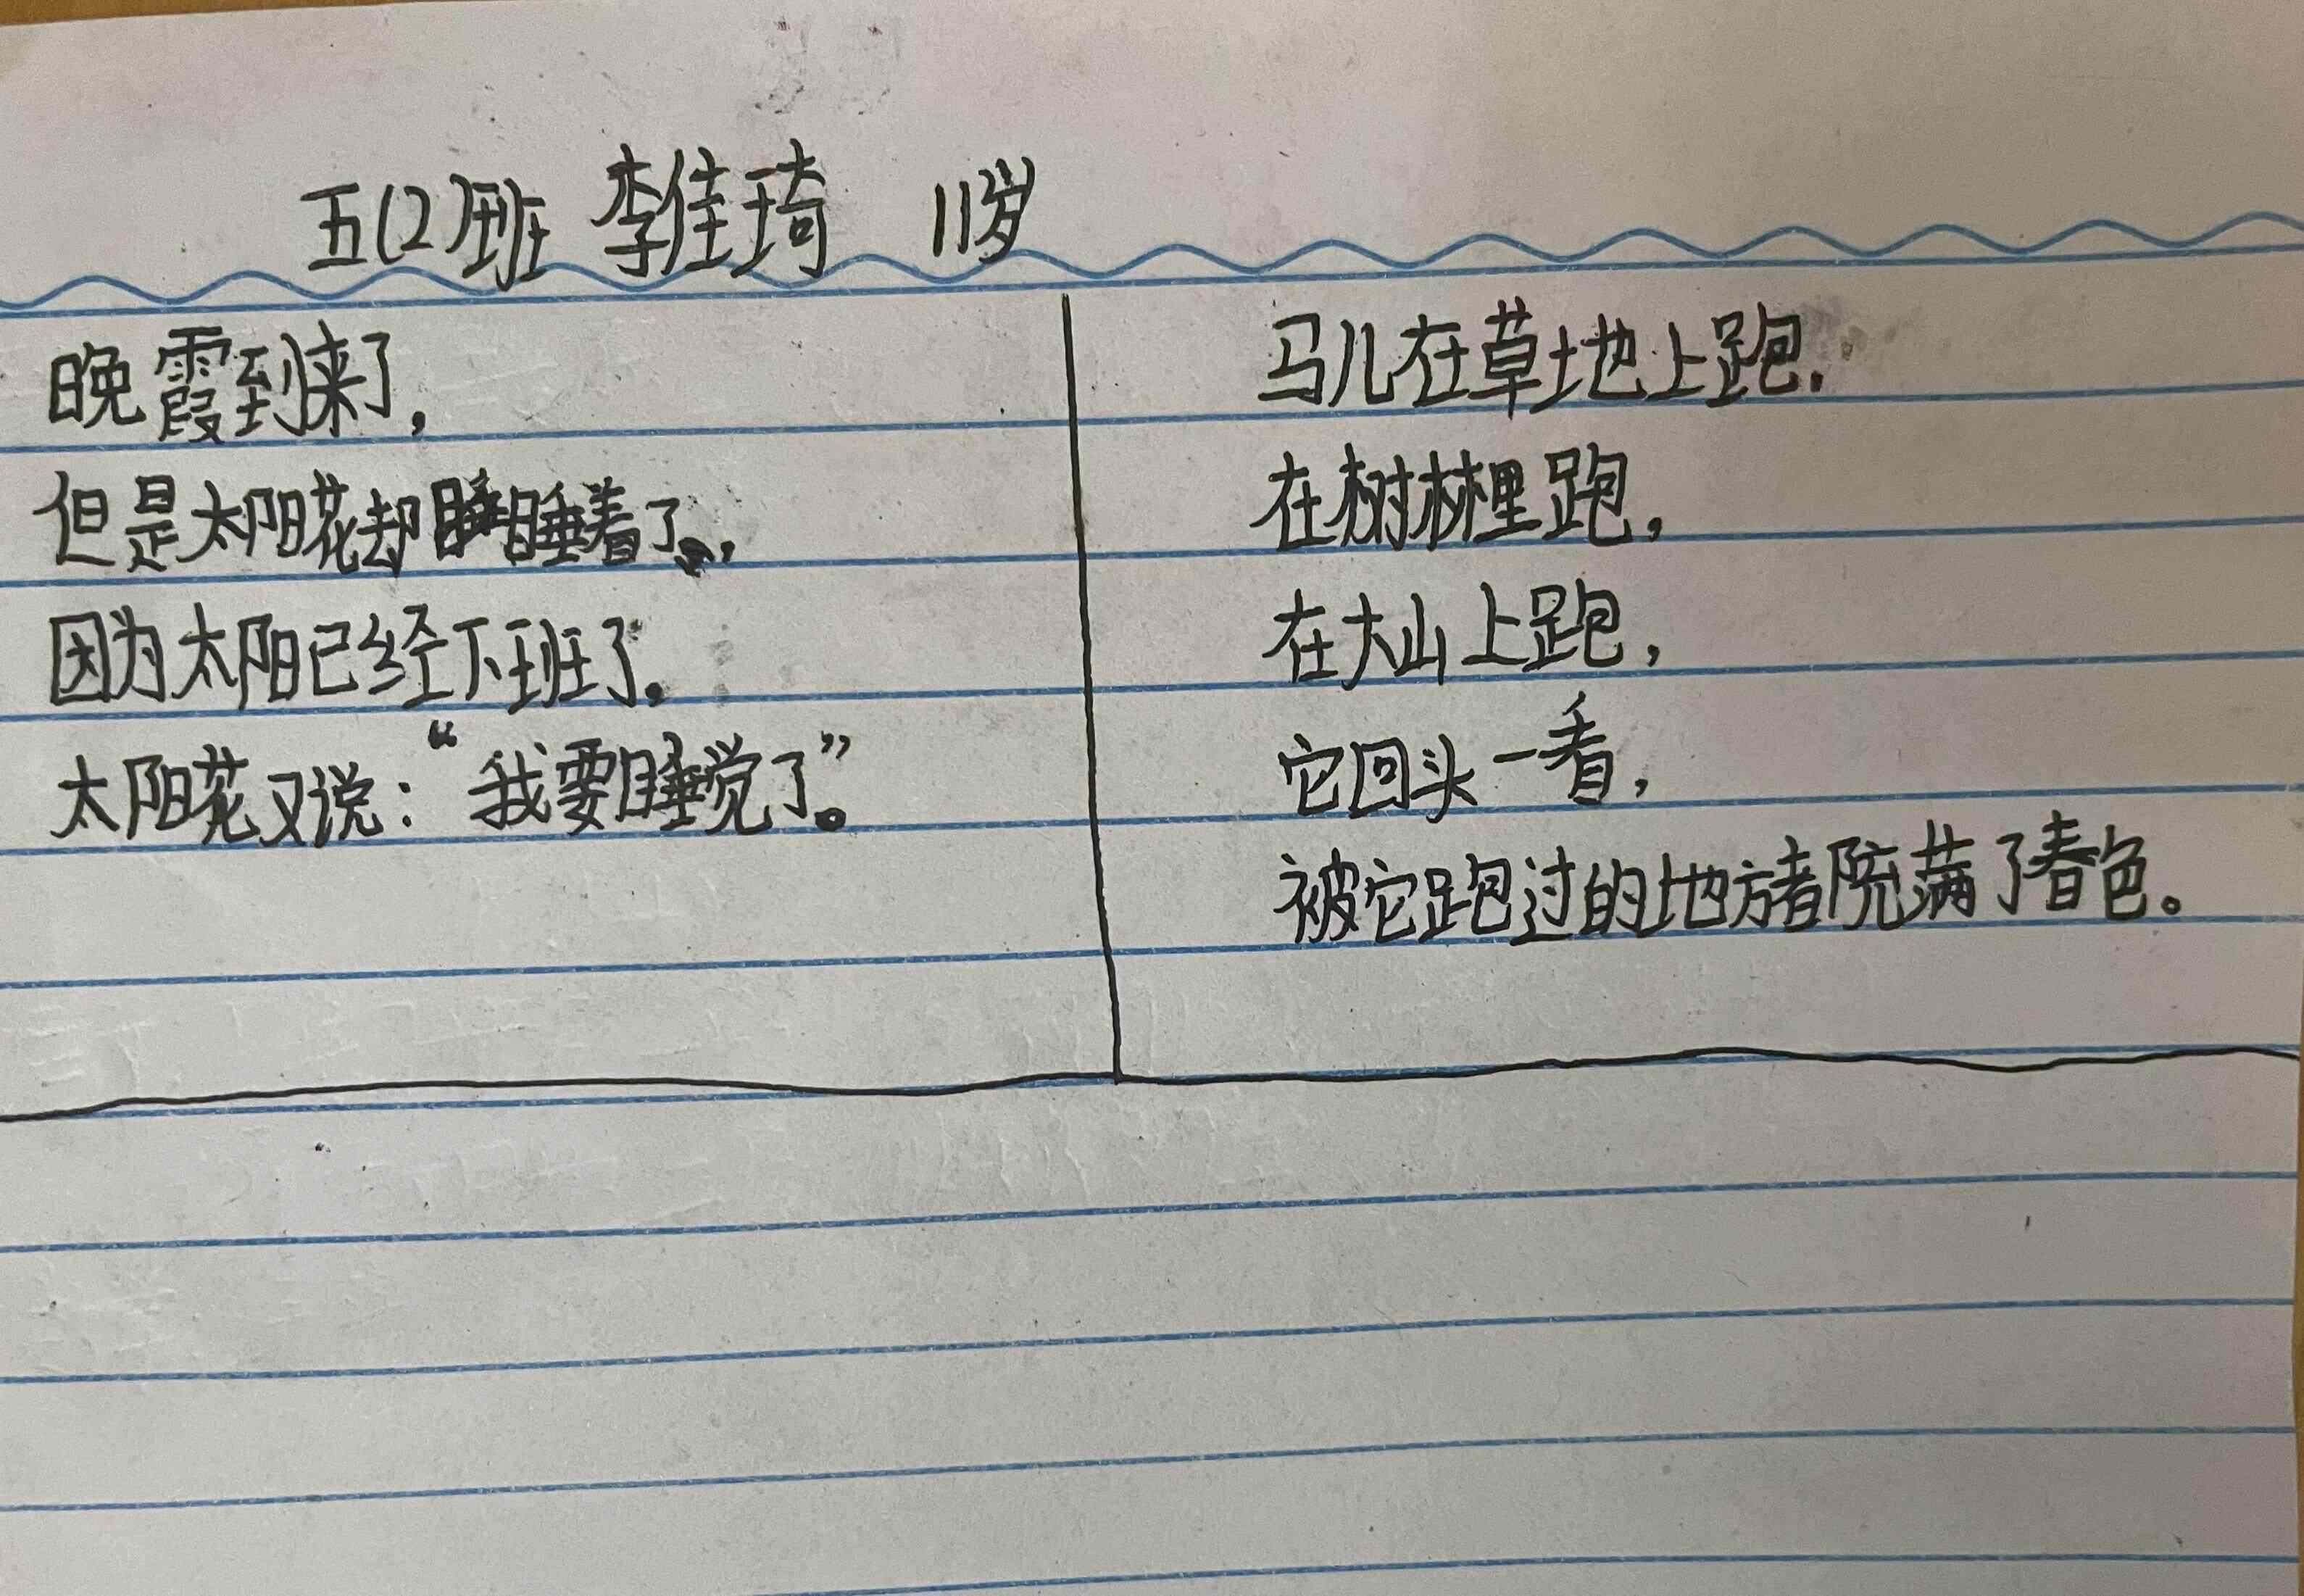 五(2)班 李佳琦 11岁
晚霞到来了,
但是太阳花却睡睡着了,
因为太阳已经下班了。
太阳花又说:“我要睡觉了”。
马儿在草地上跑.
在树林里跑,
在大山上跑,
它回头一看,
被它跑过的地方都充满了春色。